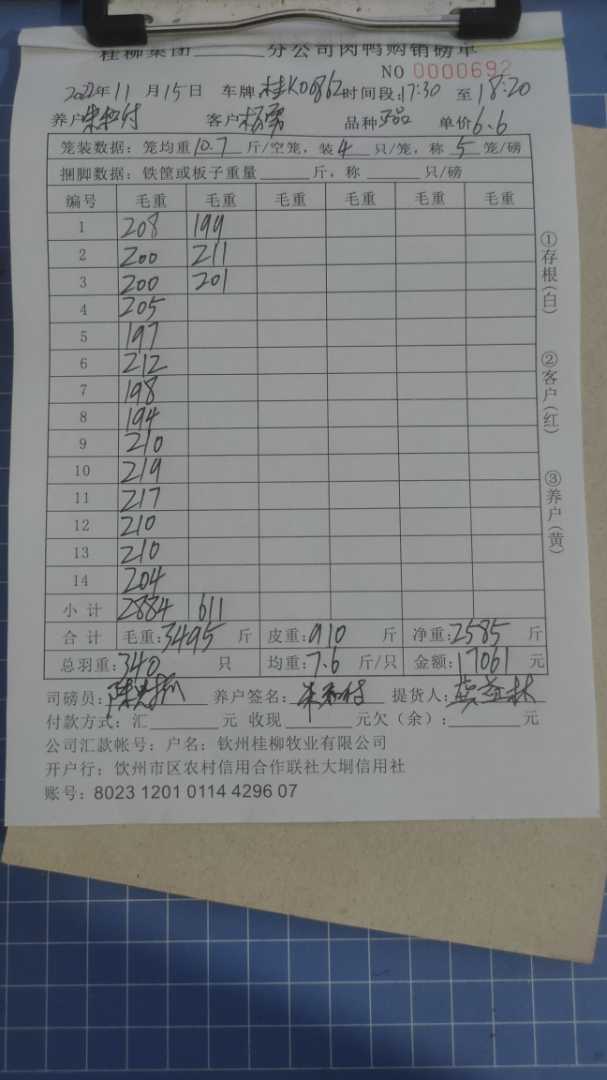 桂柳集团______分公司肉鸭购销磅单
NO 0000692
2022年11月15日 车牌 桂K00862 时间段:17:30 至 18:20
养户 客户 品种 单价6.6
笼装数据:笼均重10.7斤/空笼,装4只/笼,称5笼/磅
捆脚数据:铁筐或板子重量______斤,称______只/磅
编号 毛重 毛重 毛重 毛重 毛重 毛重
1 208 199
2 200 211
3 200 201
4 205
5 197
6 212
7 198
8 194
9 210
10 219
11 217
12 210
13 210
14 204
小计 2884 611
合计 毛重:3495斤 皮重:910斤 净重:2585斤
总羽重:340只 均重:7.6斤/只 金额:17061元
司磅员: 养户签名: 提货人:
付款方式:汇______元 收现______元欠(余):______元
公司汇款帐号:户名:钦州桂柳牧业有限公司
开户行:钦州市区农村信用合作联社大垌信用社
账号:8023 1201 0114 4296 07
①存根(白)
②客户(红)
③养户(黄)